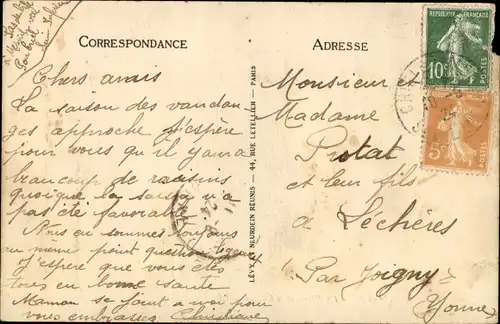 CORRESPONDANCE
Chers amis
La saison des vendan
ges approche j'espère
pour vous qu'il y aura
beaucoup de raisins
quoique la saison n'a
pas été favorable
Nous en sommes toujours
au même point question
J'espère que vous êtes
tous en bonne santé
Maman se joint a moi pour
vous embrasser Christiane
LÉVY & NEURDEIN RÉUNIS - 44, RUE LETELLIER - PARIS
ADRESSE
Monsieur
Madame
Protat
et leur fils
a Lechères
Par Joigny
Yonne
RÉPUBLIQUE FRANÇAISE
10c
POSTES
5c
POSTES